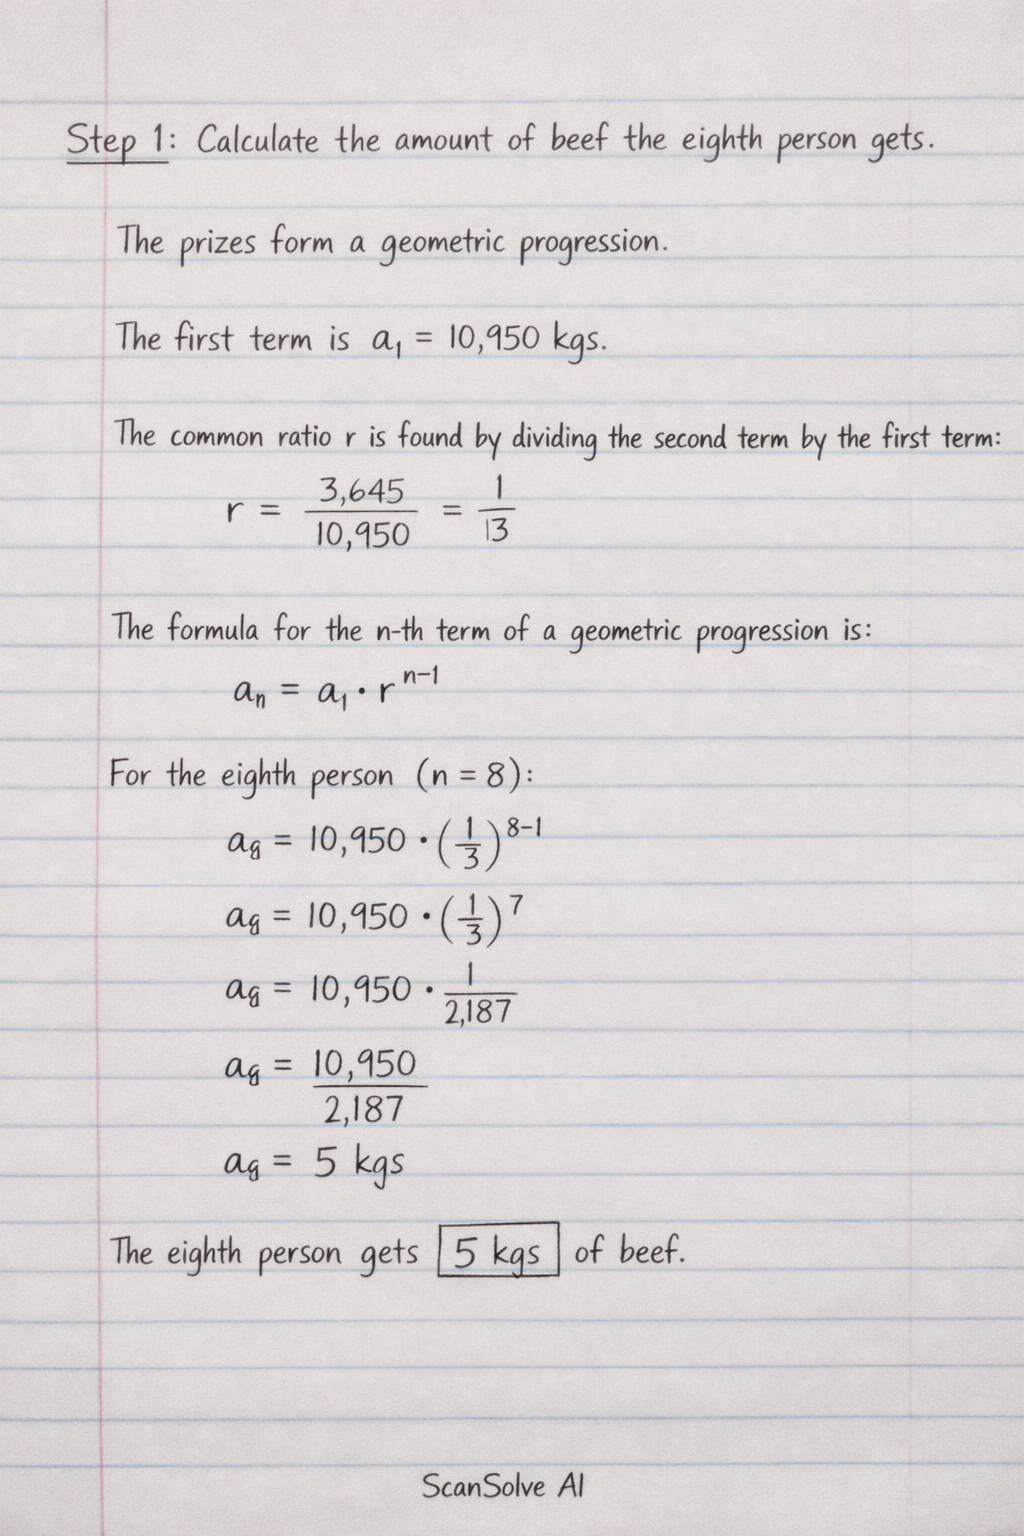 Step 1: Calculate the amount of beef the eighth person gets.
The prizes form a geometric progression.
The first term is a₁ = 10,950 kgs.
The common ratio r is found by dividing the second term by the first term:
r = 3,645/10,950 = 1/13
The formula for the n-th term of a geometric progression is:
aₙ = a₁ · r^(n-1)
For the eighth person (n = 8):
a₈ = 10,950 · (1/3)^(8-1)
a₈ = 10,950 · (1/3)^7
a₈ = 10,950 · 1/2,187
a₈ = 10,950/2,187
a₈ = 5 kgs
The eighth person gets 5 kgs of beef.
ScanSolve AI